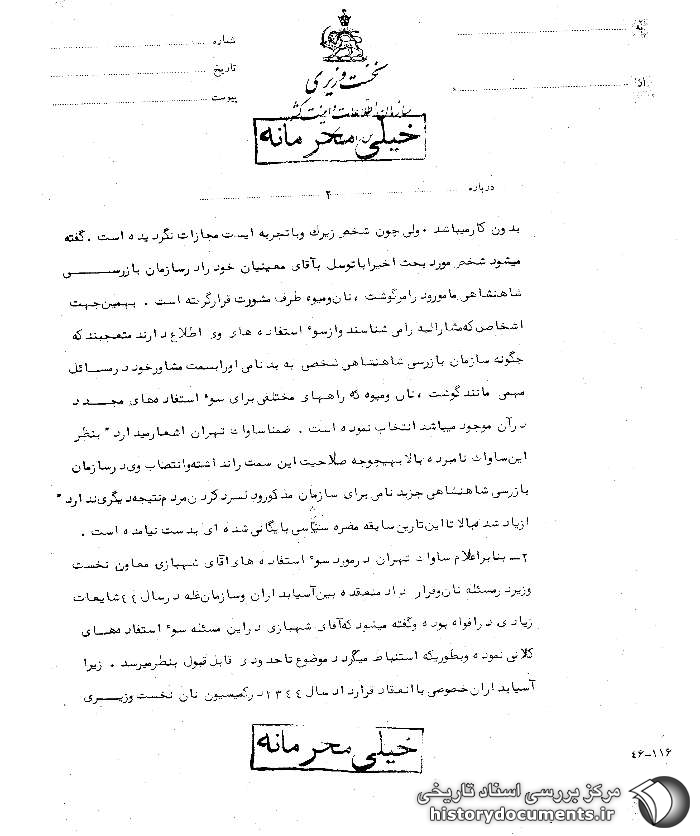 به
شماره
تاریخ
از
پیوست
نخست وزیری
سازمان اطلاعات و امنیت کشور
خیلی محرمانه
درباره
۲
بدون کارمیباشد ۰ ولی چون شخص زیرك وباتجربه ایست مجازات نگردیده است ۰ گفته
میشود شخص مورد بحث اخیرا باتوسل بآقای معینیان خود را درسازمان بازرسی
شاهنشاهی مامورود رامرگوشت ، نان ومیوه طرف مشورت قرارگرفته است ۰ بهمین جهت
اشخاصی که مشارالیه رامی شناسند وازسوء استفاده های وی اطلاع دارند متعجبند که
چگونه سازمان بازرسی شاهنشاهی شخصی به بدنامی اورابسمت مشاورخود درمسائل
مهمی مانند گوشت ، نان ومیوه که راههای مختلفی برای سوء استفاده های مجدد
درآن موجود میباشد انتخاب نموده است ۰ ضمنا ساواك تهران اشعارمیدارد " بنظر
این ساواك نامبرده بالا بهیچوجه صلاحیت این سمت راند اشته وانتصاب وی درسازمان
بازرسی شاهنشاهی جزبد نامی برای سازمان مذکورود لسرد کردن مردم نتیجه دیگری ندارد "
ازیاد شده بالا تا این تاریخ سابقه مضره سیاسی بایگانی شده ای بدست نیامده است ۰
۲ــ بنابراعلام ساواك تهران درمورد سوء استفاده های آقای شهبازی معاون نخست
وزیرد رمسئله نان وقرارداد منعقده بین آسیابداران وسازمان غله درسال ٤٤ شایعات
زیادی درافواه بوده وگفته میشود که آقای شهبازی دراین مسئله سوء استفاده های
کلانی نموده وبطوریکه استنباط میگردد موضوع تاحدودی قابل قبول بنظرمیرسد ۰ زیرا
آسیابداران خصوصی با انعقاد قرارداد سال ١٣٤٤ درکمیسیون نان نخست وزیری
خیلی محرمانه
٤۶-۱۱۶
مرکز بررسی اسناد تاریخی
historydocuments.ir